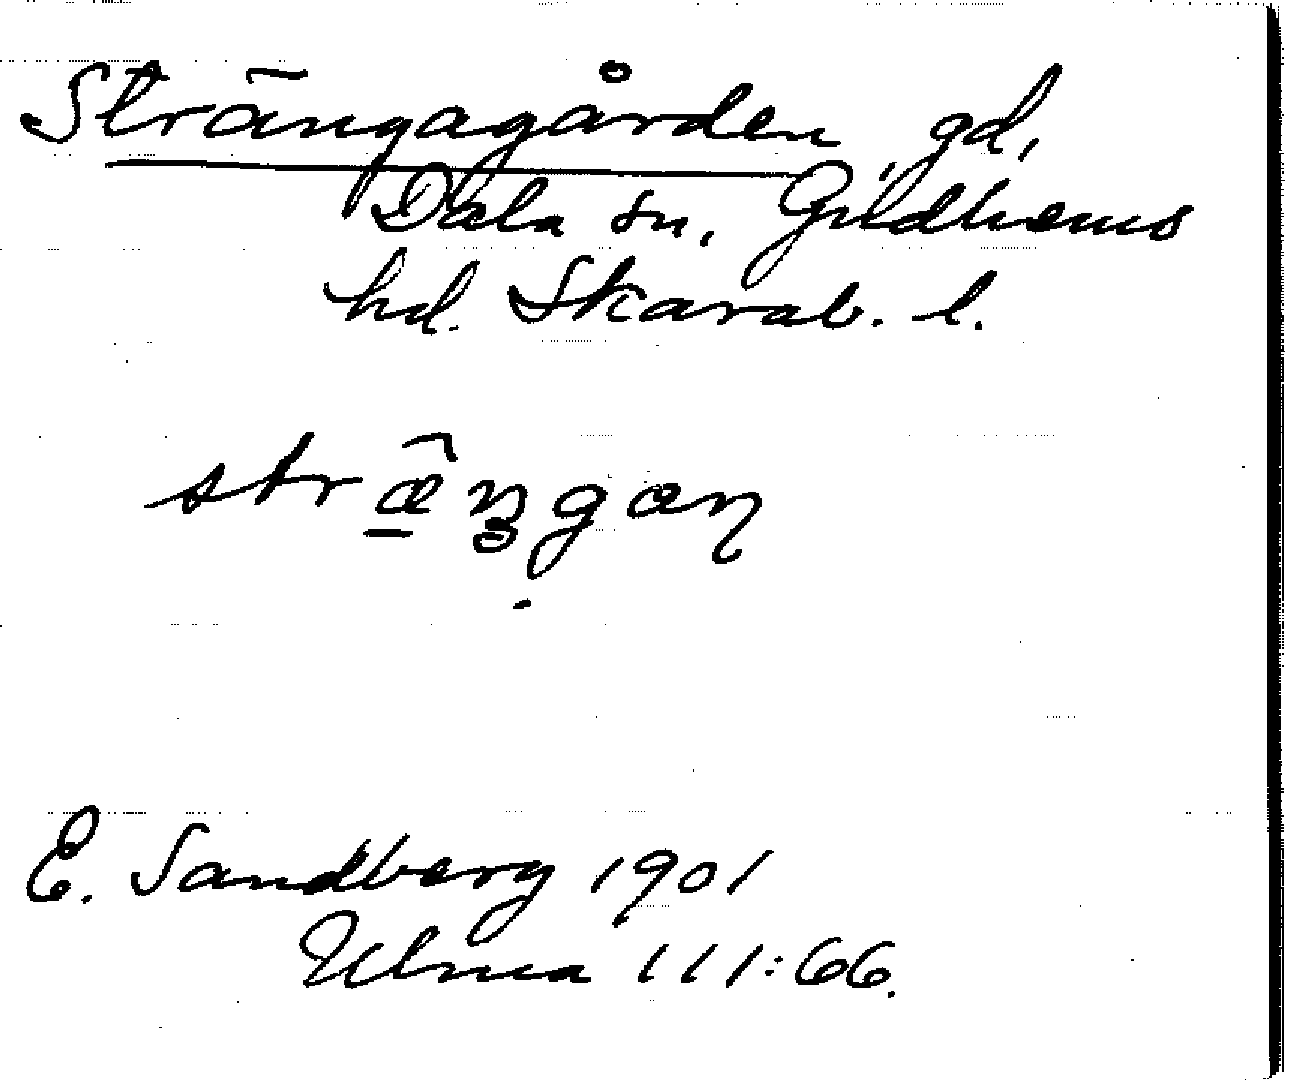 Strängagården, gd,
Dala sn, Gudhems
hd. Skarab. l.
E. Sandberg 1901
Ulma 111:66.